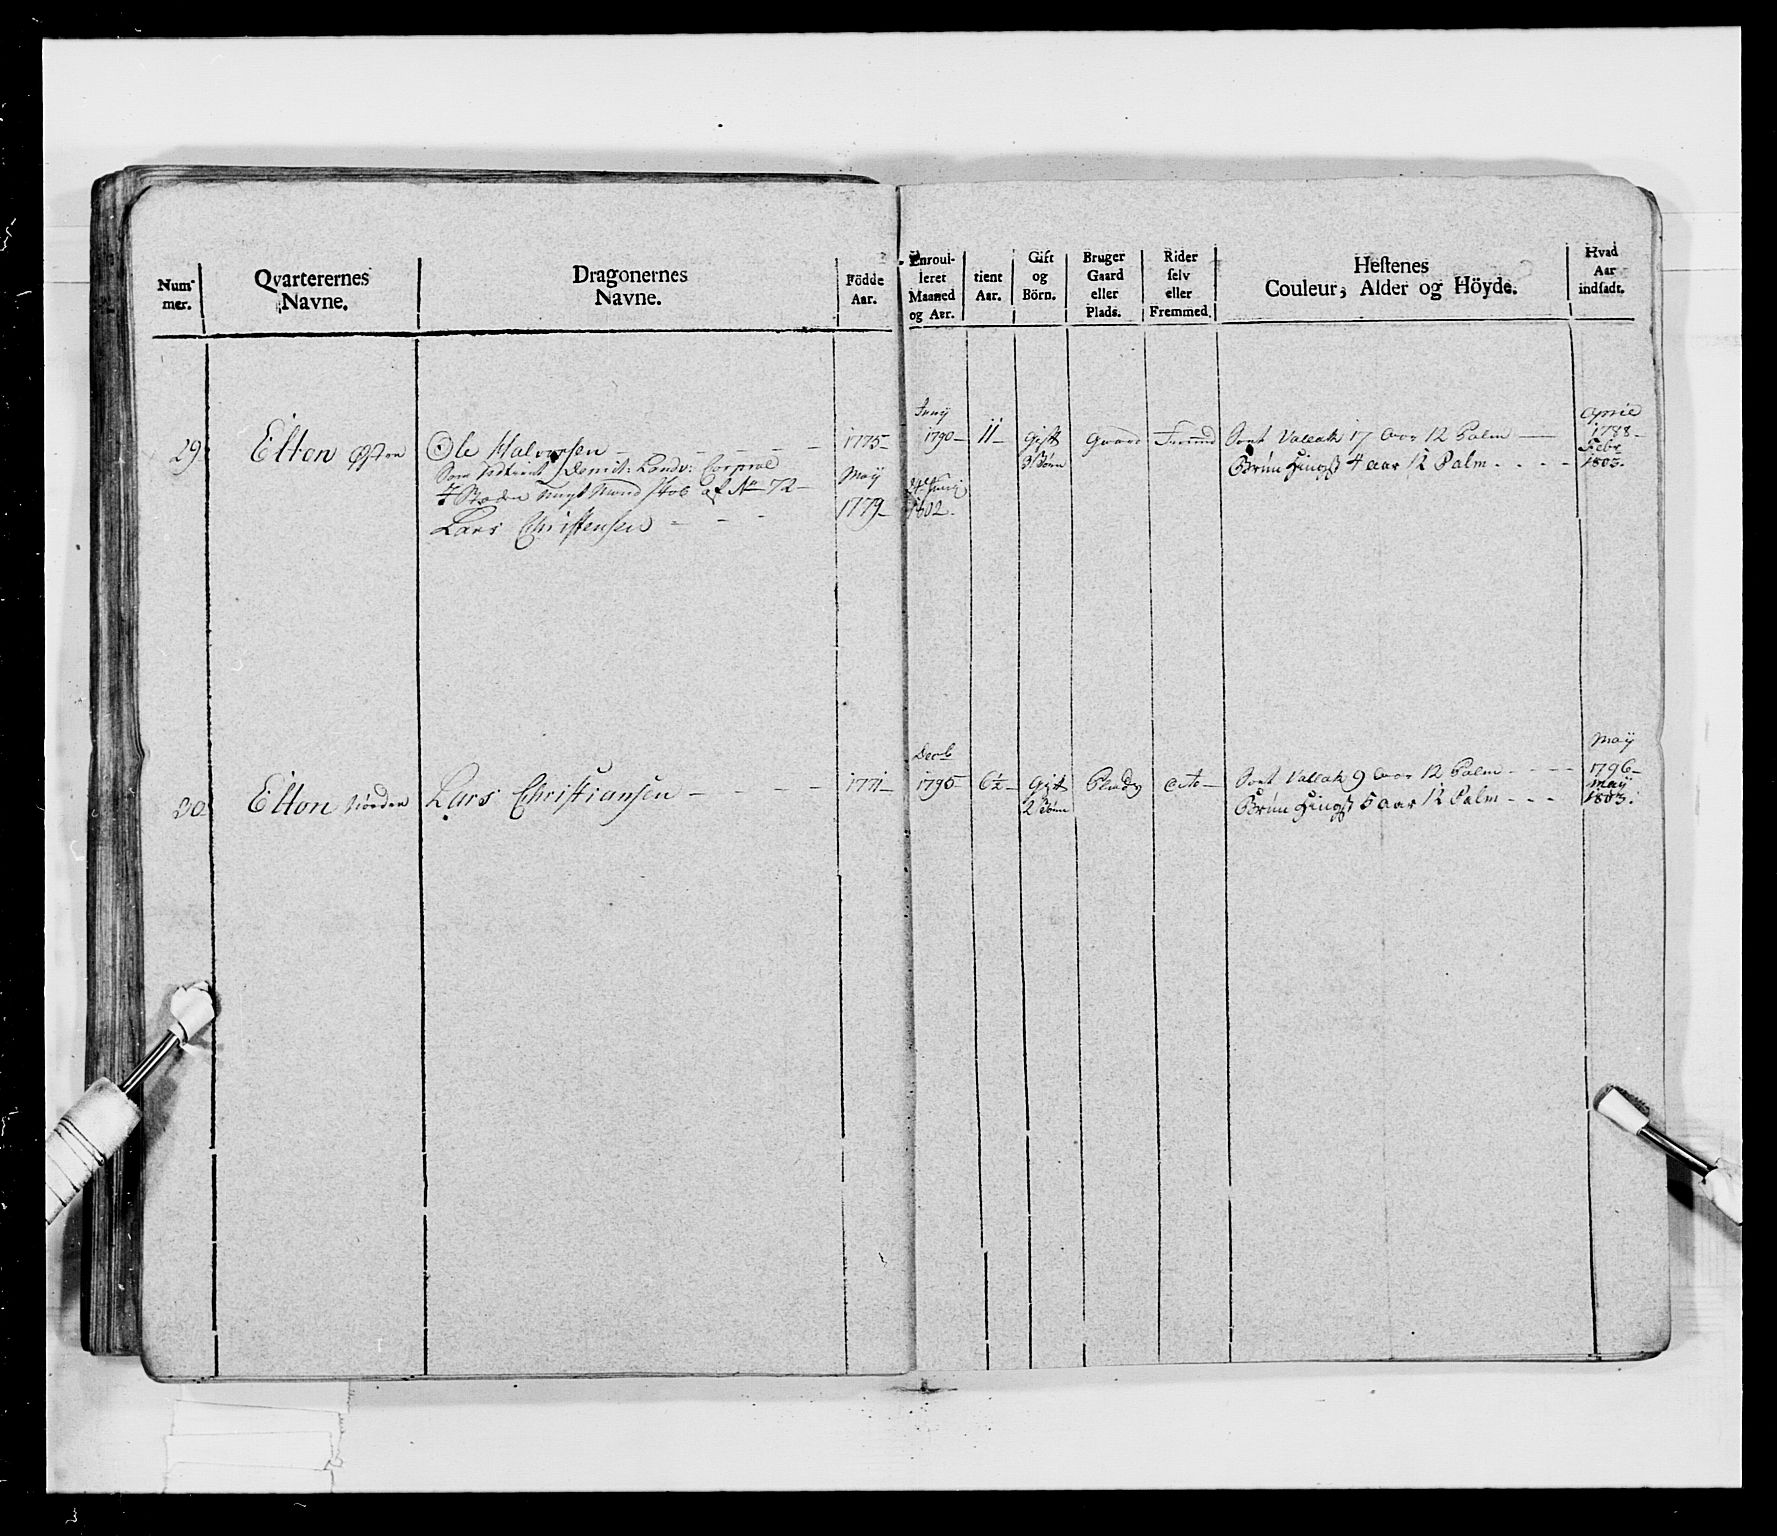 Num-
mer.
Qvarterernes
Navne.
Dragonernes
Navne.
Födde
Aar.
Enroul-
leret
Maaned
og Aar.
tient
Aar.
Gift
og
Börn.
Bruger
Gaard
eller
Plads.
Rider
selv
eller
Fremmed.
Hestenes
Couleur, Alder og Höyde.
Hvad
Aar
indsadt.
29
Elton Østre
Ole Halvorsen
Landv: Corporal
af No 72
Lars Christensen
1775
May
1779
Juny
1790
1802.
11
Gift
3 Børn
Gaard
Fremmd
Sort Vallak 17 Aar 12 Palm
Brun Hingst 4 aar 12 Palm
April
1788
Febr
1803.
30
Elton Nordre
Lars Christiansen
1771
Decb
1795
6½
Gift
2 Børn
Plads
dito
Sort Vallak 9 Aar 12 Palm
Brun Hingst 5 aar 12 Palm
May
1796
May
1803.